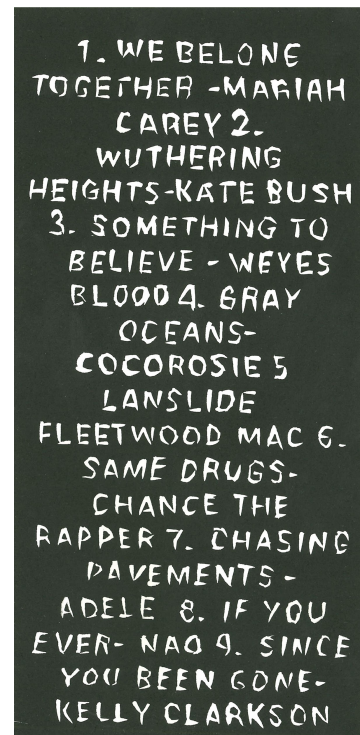 1. WE BELONE
TOGETHER -MARIAH
CAREY 2.
WUTHERING
HEIGHTS-KATE BUSH
3. SOMETHING TO
BELIEVE - WEYES
BLOOD 4. GRAY
OCEANS-
COCOROSIE 5
LANSLIDE
FLEETWOOD MAC 6.
SAME DRUGS-
CHANCE THE
RAPPER 7. CHASING
PAVEMENTS -
ADELE 8. IF YOU
EVER- NAO 9. SINCE
YOU BEEN GONE-
KELLY CLARKSON